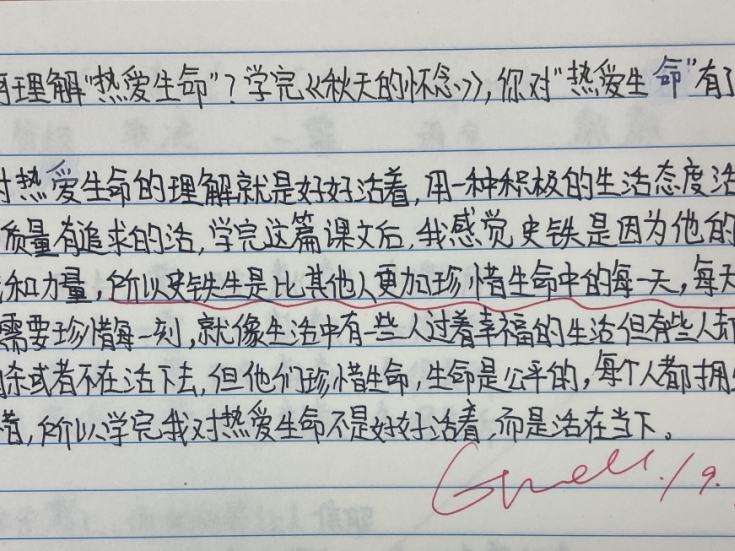 理解“热爱生命”？学完《秋天的怀念》，你对“热爱生命”有了
对热爱生命的理解就是好好活着，用一种积极的生活态度活
质量有追求的活，学完这篇课文后，我感觉史铁是因为他的
和力量，所以史铁生是比其他人更加珍惜生命中的每一天，每天
需要珍惜每一刻，就像生活中有一些人过着幸福的生活但有些人却
杀或者不在活下去，但他们珍惜生命，生命是公平的，每个人都拥
惜，所以学完我对热爱生命不是好好活着，而是活在当下。